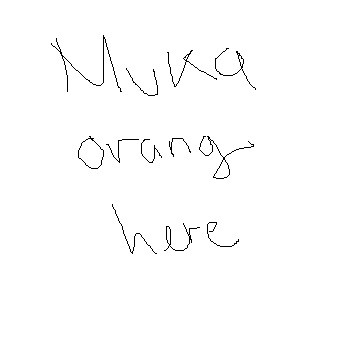 Muka
orang
here